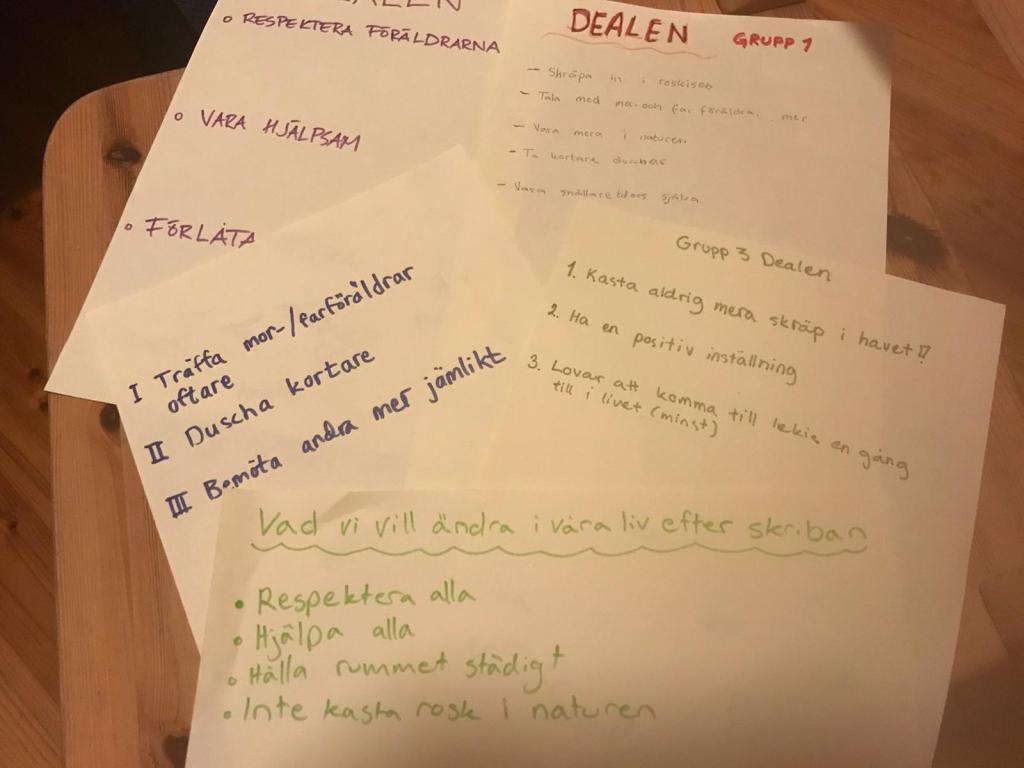 DEALEN
• RESPEKTERA FÖRÄLDRARNA
• VARA HJÄLPSAM
• FÖRLÅTA
DEALEN GRUPP 1
- Skräpa in i roskisen
- Tala med mor och far föräldrar mer
- Vara mera i naturen
- Ta kortare duschar
- Vara snällare
I Träffa mor-/farföräldrar
oftare
II Duscha kortare
III Bemöta andra mer jämlikt
Grupp 3 Dealen
1. Kasta aldrig mera skräp i havet!!
2. Ha en positiv inställning
3. Lovar att komma till lekis en gång
till i livet (minst)
Vad vi vill ändra i våra liv efter skriban
• Respektera alla
• Hjälpa alla
• Hålla rummet städigt
• Inte kasta rosk i naturen